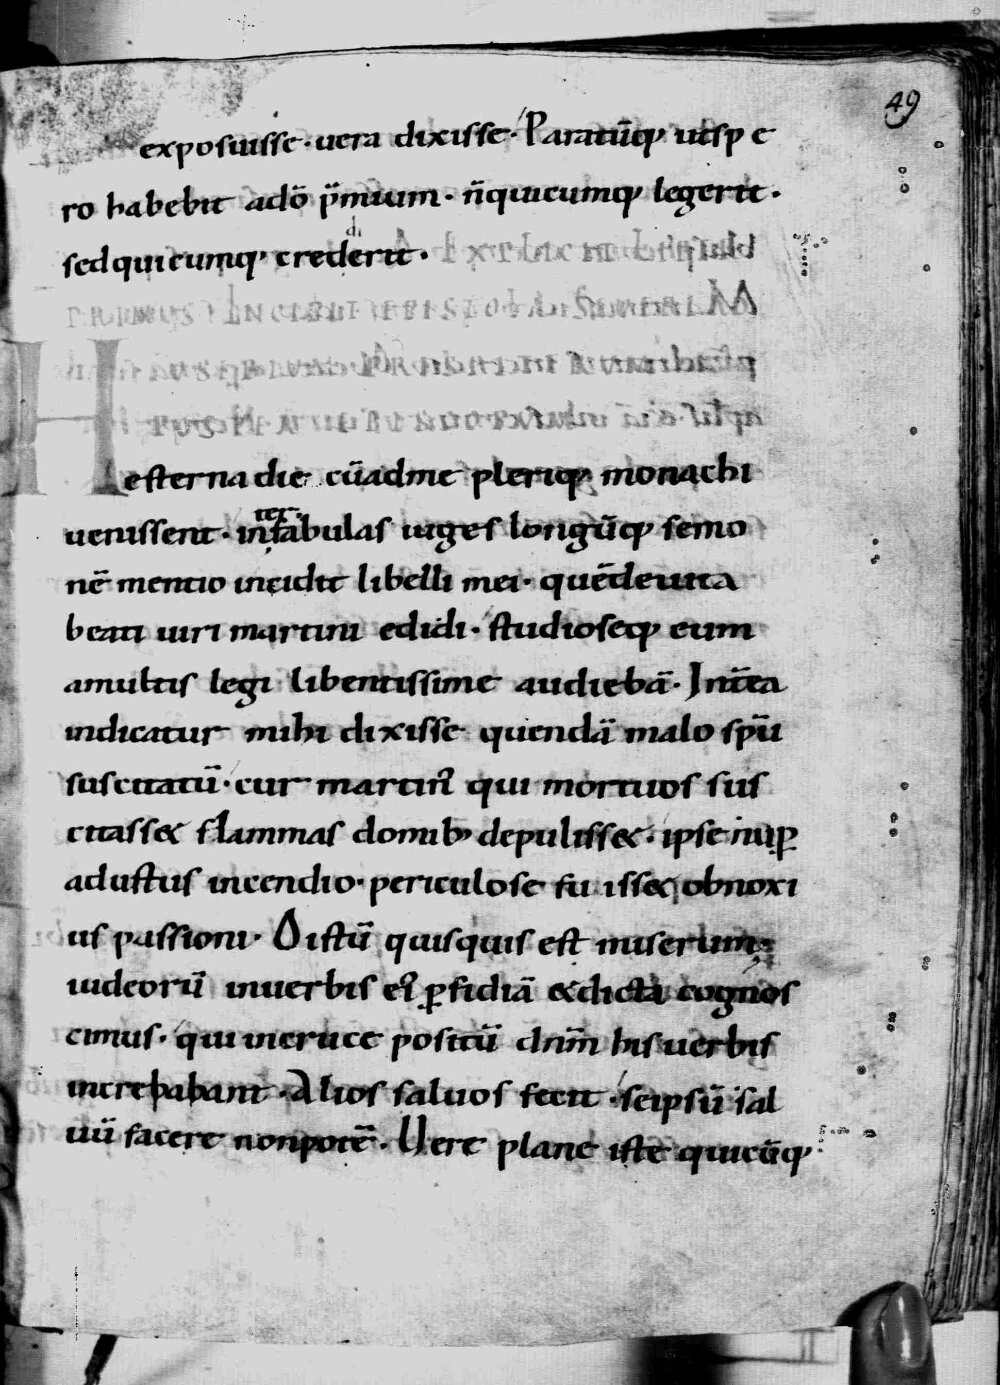 49
exposuisse · uera dixisse · Paratūq; ut sp e
ro habebit adō p̄mium · n̄ quicumq; legerit ·
sed quicumq; crediderit ·
H
esterna die cū ad me pleriq; monachi
uenissent · inter fabulas iuges longūq; semo
nē mentio incidit libelli mei · quē de uita
beati uiri martini edidi · studioseq; eum
a multis legi libentissime audiebā · Int̄ea
indicatur mihi dixisse quendā malo sp̄u
suscitatū · cur martin᾽ qui mortuos sus
citass& flammas domib; depuliss& · ipse nup̄
adustus incendio · periculose fuiss& obnoxi
us passioni · O istū quisquis est miserum
iudeorū in uerbis ei᾽ ꝑfidiā & dicta cognos
cimus · qui in cruce positū dn̄m his uerbis
increpabant · Alios saluos fecit · seipsū sal
uū facere non potē · Uere plane iste quicūq;